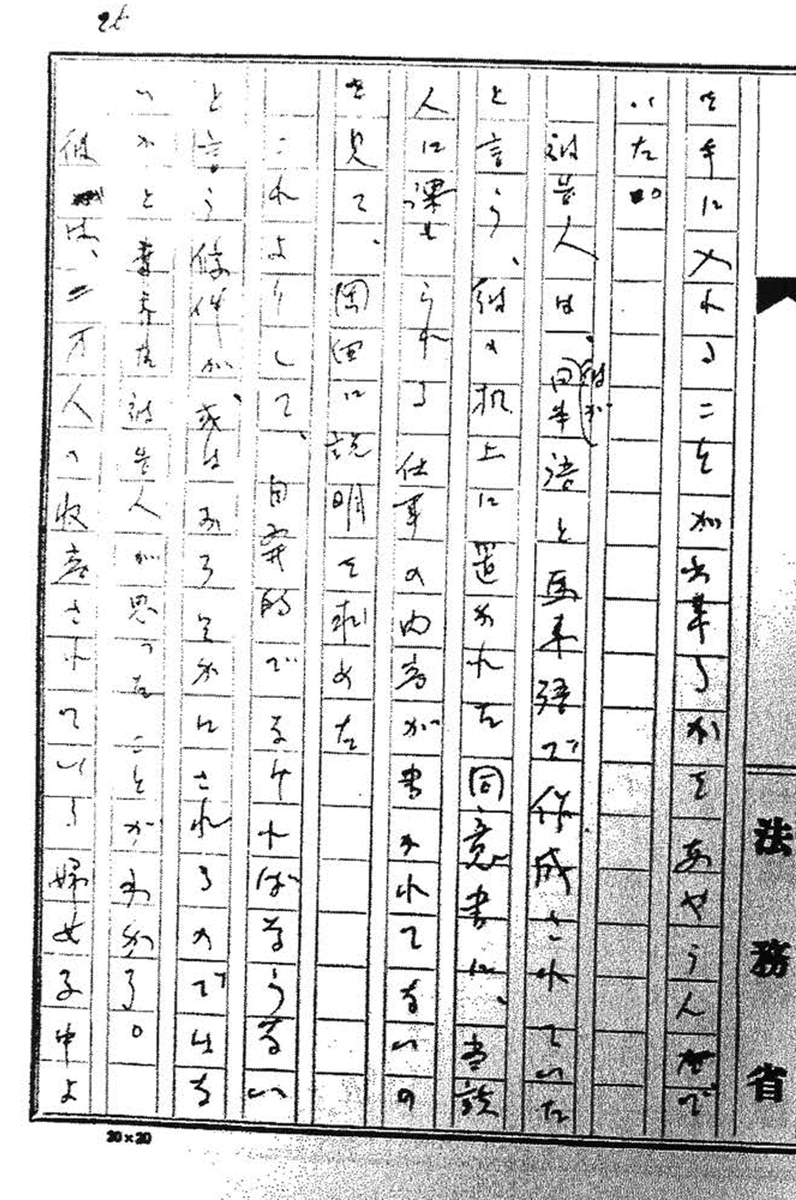 25
法務省
を手に入れることが出来るかをあやうんで
いた。
被告人は、彼が日本語と馬来語で作成されていた
と言う、彼の机上に置かれた同意書に、当該
人に課せられる仕事の内容が書かれてないの
を見て、岡田に説明を求めた
これよりして、自発的でなければならない
と言う條件が、或はおろそかにされるのではな
いかと被告人が思ったことがわかる。
彼は、二万人の収容されている婦女子中よ
20×20